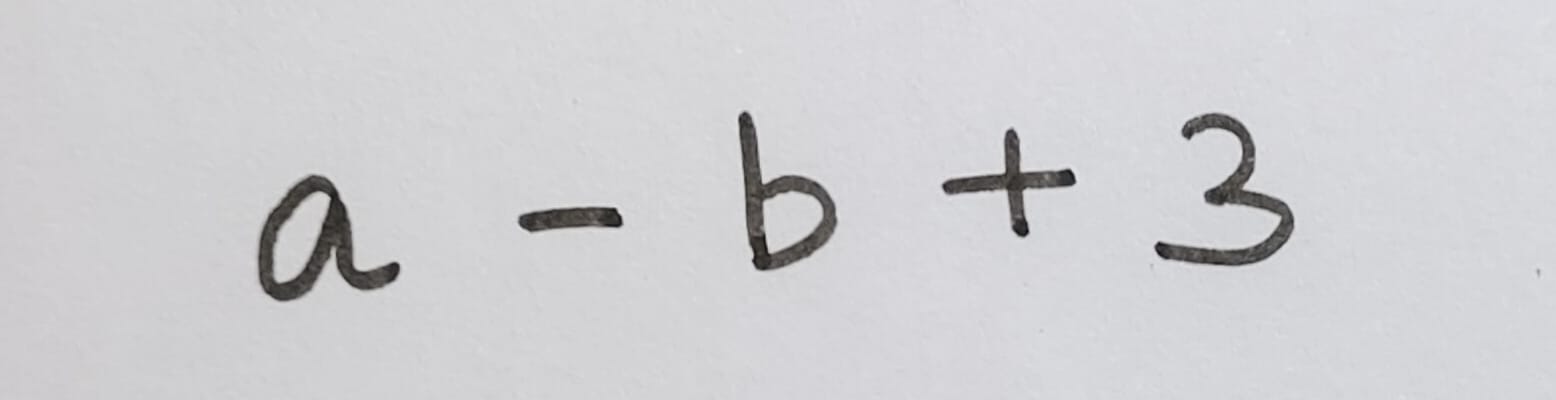 a - b + 3